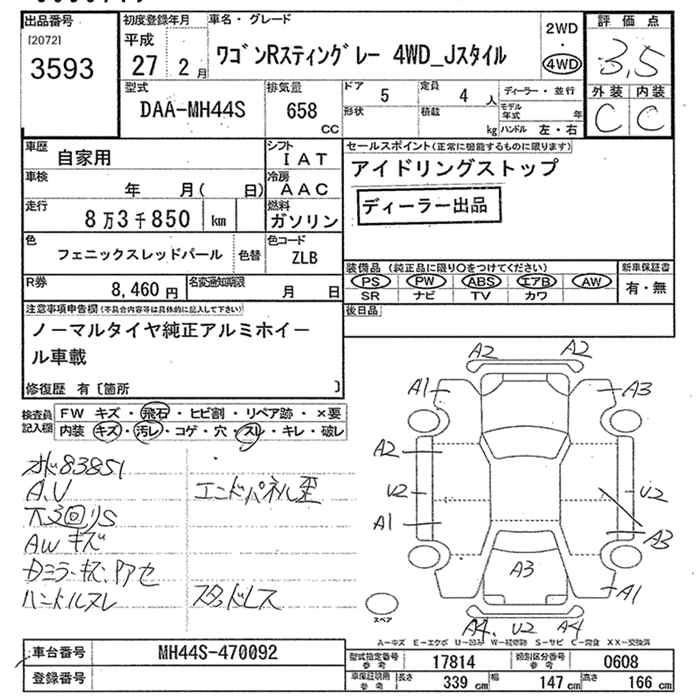 出品番号
[2072]
3593
初度登録年月
平成
27 2月
車名・グレード
ワゴンRスティングレー 4WD_Jスタイル
2WD
・
4WD
評価点
3.5
外装 内装
C C
型式
DAA-MH44S
排気量
658
cc
ドア
5
定員
4 人
形状
積載
kg
ディーラー・並行
モデル年式 年
ハンドル 左・右
車歴
自家用
シフト
IAT
車検
年 月( 日)
冷房
AAC
走行
8万3千850 km
燃料
ガソリン
色
フェニックスレッドパール
色替
色コード
ZLB
R券
8,460円
名変通知期限
月 日
セールスポイント(正常に機能するものに限ります)
アイドリングストップ
ディーラー出品
装備品(純正品に限り○をつけてください)
PS PW ABS エアB AW
SR ナビ TV カワ
新車保証書
有・無
後日品
注意事項申告欄(不具合内容等は具体的に記入して下さい)
ノーマルタイヤ純正アルミホイー
ル車載
修復歴 有[箇所 ]
検査員
記入欄
FW キズ・飛石・ヒビ割・リペア跡・×要
内装 キズ・汚レ・コゲ・穴・スレ・キレ・破レ
83851
A.V
エンドパネル歪
AWキズ
ハンドルスレ
スタッドレス
A2 A2
A1 A3
A2
U2 U2
A1 A3
A3
A1
A4 U2 A4
スペア
A-キズ E-エクボ U-凹み W-補修跡 S-サビ C-腐食 XX-交換済
車台番号
MH44S-470092
登録番号
型式指定番号
参考
17814
類別区分番号
参考
0608
車保証現用
参考
長さ
339 cm
幅
147 cm
高さ
166 cm